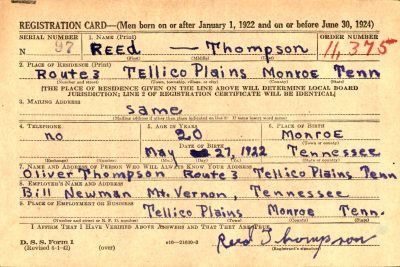 REGISTRATION CARD—(Men born on or after January 1, 1922 and on or before June 30, 1924)
SERIAL NUMBER 1. Name (Print) ORDER NUMBER
N 97 Reed — Thompson 11,375
(First) (Middle) (Last)
2. Place of Residence (Print)
Route 3 Tellico Plains Monroe Tenn
(Number and street) (Town, township, village, or city) (County) (State)
[THE PLACE OF RESIDENCE GIVEN ON THE LINE ABOVE WILL DETERMINE LOCAL BOARD
JURISDICTION; LINE 2 OF REGISTRATION CERTIFICATE WILL BE IDENTICAL]
3. Mailing Address
same
[Mailing address if other than place indicated on line 2. If same insert word same]
4. Telephone 5. Age in Years 6. Place of Birth
no 20 Monroe
Date of Birth (Town or county)
May 27, 1922 Tennessee
(Exchange) (Number) (Mo.) (Day) (Yr.) (State or country)
7. Name and Address of Person Who Will Always Know Your Address
Oliver Thompson Route 3 Tellico Plains Tenn
8. Employer's Name and Address
Bill Newman Mt. Vernon, Tennessee
9. Place of Employment or Business
Tellico Plains Monroe Tenn.
(Number and street or R. F. D. number) (Town) (County) (State)
I Affirm That I Have Verified Above Answers and That They Are True.
D. S. S. Form 1 Reed Thompson
(Revised 6-1-42) (over) (Registrant's signature)